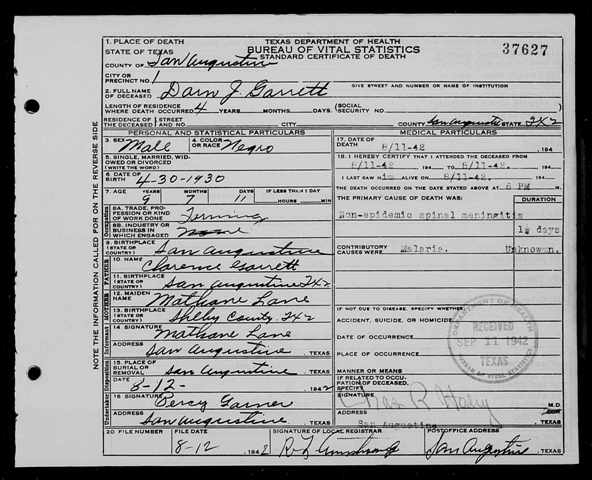 1. PLACE OF DEATH
STATE OF TEXAS
TEXAS DEPARTMENT OF HEALTH
BUREAU OF VITAL STATISTICS
STANDARD CERTIFICATE OF DEATH
37627
COUNTY OF San Augustine
CITY OR PRECINCT NO. 1
GIVE STREET AND NUMBER OR NAME OF INSTITUTION
2. FULL NAME OF DECEASED Darn J. Garrett
LENGTH OF RESIDENCE WHERE DEATH OCCURRED 4 YEARS MONTHS DAYS (SOCIAL SECURITY NO.
RESIDENCE OF THE DECEASED STREET AND NO. CITY COUNTY San Augustine STATE
PERSONAL AND STATISTICAL PARTICULARS
MEDICAL PARTICULARS
3. SEX Male 4. COLOR OR RACE Negro
5. SINGLE, MARRIED, WIDOWED OR DIVORCED (WRITE THE WORD)
6. DATE OF BIRTH 4-30-1930
7. AGE YEARS MONTHS DAYS IF LESS THAN 1 DAY
9 7 11 HOURS MINUTES
8A. TRADE, PROFESSION OR KIND OF WORK DONE Farming
8B. INDUSTRY OR BUSINESS IN WHICH ENGAGED None
9. BIRTHPLACE (STATE OR COUNTRY) San Augustine
10. NAME Clarence Garrett
11. BIRTHPLACE (STATE OR COUNTRY) San Augustine
12. MAIDEN NAME Mathane Lane
13. BIRTHPLACE (STATE OR COUNTRY) Shelby County
14. SIGNATURE Mathane Lane
San Augustine, TEXAS
15. PLACE OF BURIAL OR REMOVAL San Augustine, TEXAS
DATE 8-12- 1942
16. SIGNATURE Percy Garner
San Augustine TEXAS
17. DATE OF DEATH 8/11-42 194
18. I HEREBY CERTIFY THAT I ATTENDED THE DECEASED FROM
8/11-42 194 TO 8/11-42. 194
I LAST SAW him ALIVE ON 8/11-42. 194
THE DEATH OCCURRED ON THE DATE STATED ABOVE AT 6 PM M.
THE PRIMARY CAUSE OF DEATH WAS: DURATION
Non-epidemic spinal meningitis 1½ days
CONTRIBUTORY CAUSES WERE Malaria. Unknowen.
IF NOT DUE TO DISEASE, SPECIFY WHETHER:
ACCIDENT, SUICIDE, OR HOMICIDE
DATE OF OCCURRENCE
PLACE OF OCCURRENCE
MANNER OR MEANS
IF RELATED TO OCCUPATION OF DECEASED, SPECIFY
SIGNATURE M.D.
San Augustine TEXAS
DEPARTMENT OF HEALTH
RECEIVED
SEP 11 1942
TEXAS
20. FILE NUMBER FILE DATE SIGNATURE OF LOCAL REGISTRAR POSTOFFICE ADDRESS
8-12 1942 San Augustine TEXAS
NOTE THE INFORMATION CALLED FOR ON THE REVERSE SIDE